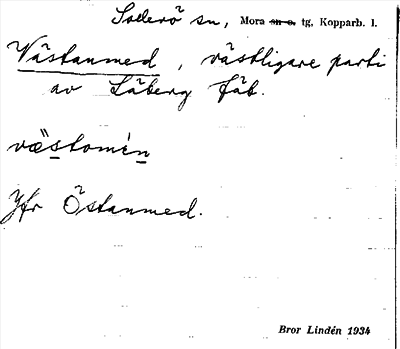 Sollerö sn, Mora sn o. tg, Kopparb. l.
Västanmed, västligare parti
av Låberg fäb.
væ̀stomén
Jfr Östanmed.
Bror Lindén 1934